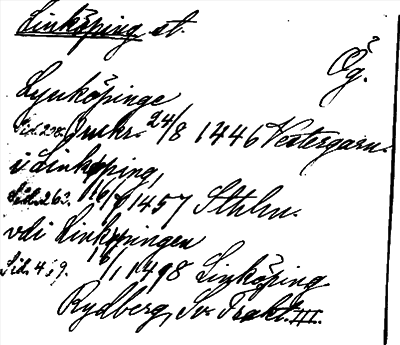 Linköping st.
Ög.
Lynköpinge
Sid. 298. Innkr. 24/8 1446 Vestergarn.
i Linkøping,
Sid. 263. 16/8 1457 Sthlm.
vdi Linköpingen
Sid. 459. 18/1 1498 Linköping
Rydberg, Sv. Trakt. III.